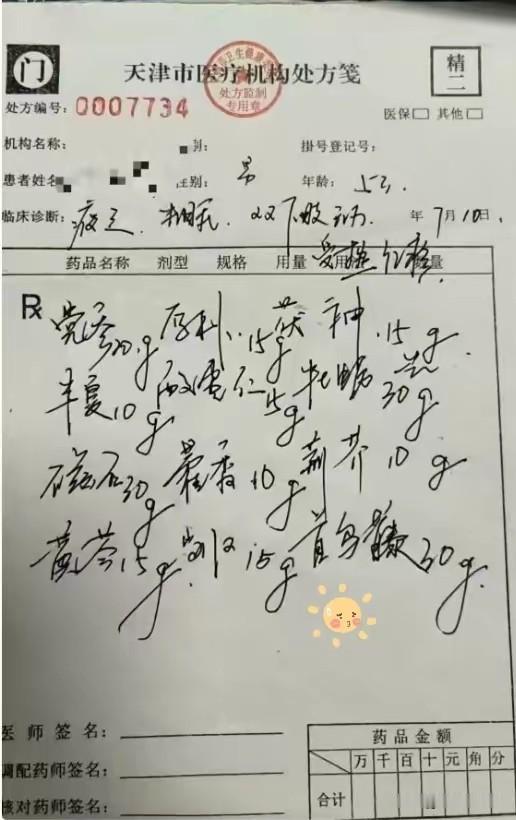 门
天津市医疗机构处方笺
精二
处方监制
专用章
处方编号：0007734
医保□ 其他□
机构名称：
挂号登记号：
患者姓名
性别： 男
年龄： 53
临床诊断： 失眠. 双下肢 年7月10日.
药品名称 剂型 规格 用量 用 数量
Rp
党参 30g 厚朴 15g 茯神 15g
半夏10g 酸枣仁15g 牡蛎 30g
磁石30g 藿香10g 荆芥10g
黄芩15g 15g 首乌藤30g.
医师签名：
药品金额
调配药师签名：
万千百十元角分
核对药师签名：
合计